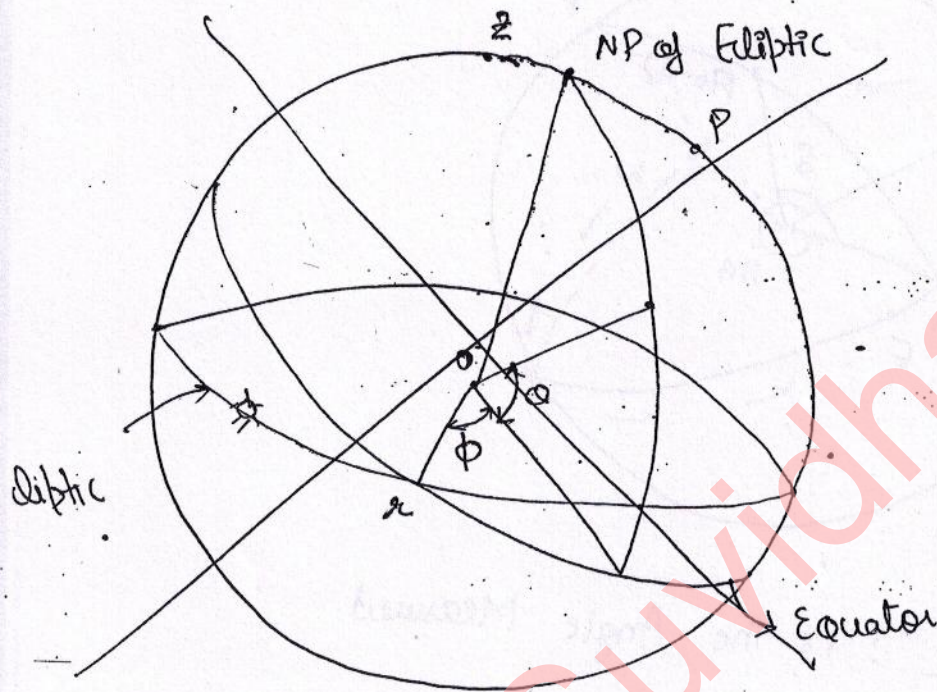 Z
NP of Ecliptic
P
O
θ
ϕ
liptic
r
Equator